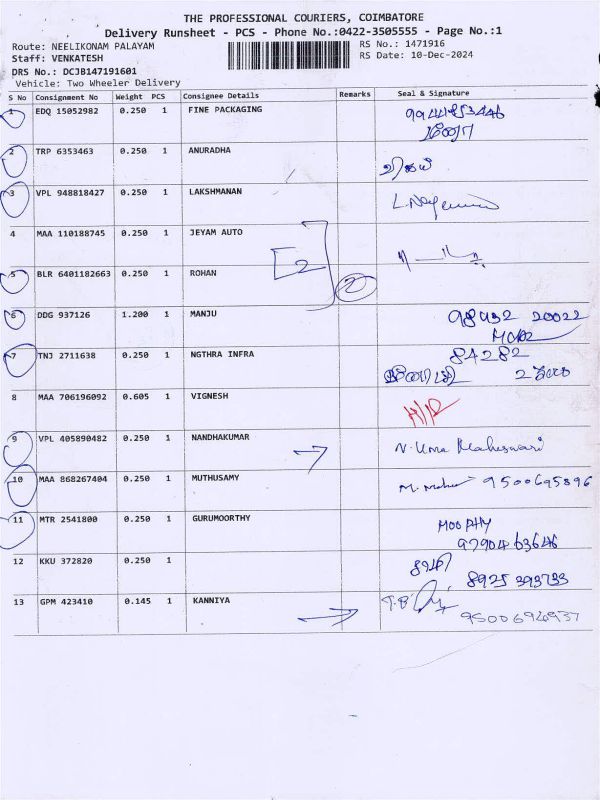 THE PROFESSIONAL COURIERS, COIMBATORE
Delivery Runsheet - PCS - Phone No.:0422-3505555 - Page No.:1
Route: NEELIKONAM PALAYAM
RS No.: 1471916
Staff: VENKATESH
RS Date: 10-Dec-2024
DRS No.: DCJB147191601
Vehicle: Two Wheeler Delivery
S No Consignment No Weight PCS Consignee Details Remarks Seal & Signature
1 EDQ 15052982 0.250 1 FINE PACKAGING
2 TRP 6353463 0.250 1 ANURADHA
3 VPL 948818427 0.250 1 LAKSHMANAN
4 MAA 110188745 0.250 1 JEYAM AUTO
2
5 BLR 6401182663 0.250 1 ROHAN
2
6 DDG 937126 1.200 1 MANJU 98432 20022
7 TNJ 2711638 0.250 1 NGTHRA INFRA 84282
8 MAA 706196092 0.605 1 VIGNESH
9 VPL 405890482 0.250 1 NANDHAKUMAR N. Uma Maheswari
10 MAA 868267404 0.250 1 MUTHUSAMY 9500695896
11 MTR 2541800 0.250 1 GURUMOORTHY MOORTHY
97904 63646
12 KKU 372820 0.250 1
8925 393733
13 GPM 423410 0.145 1 KANNIYA
9500694937